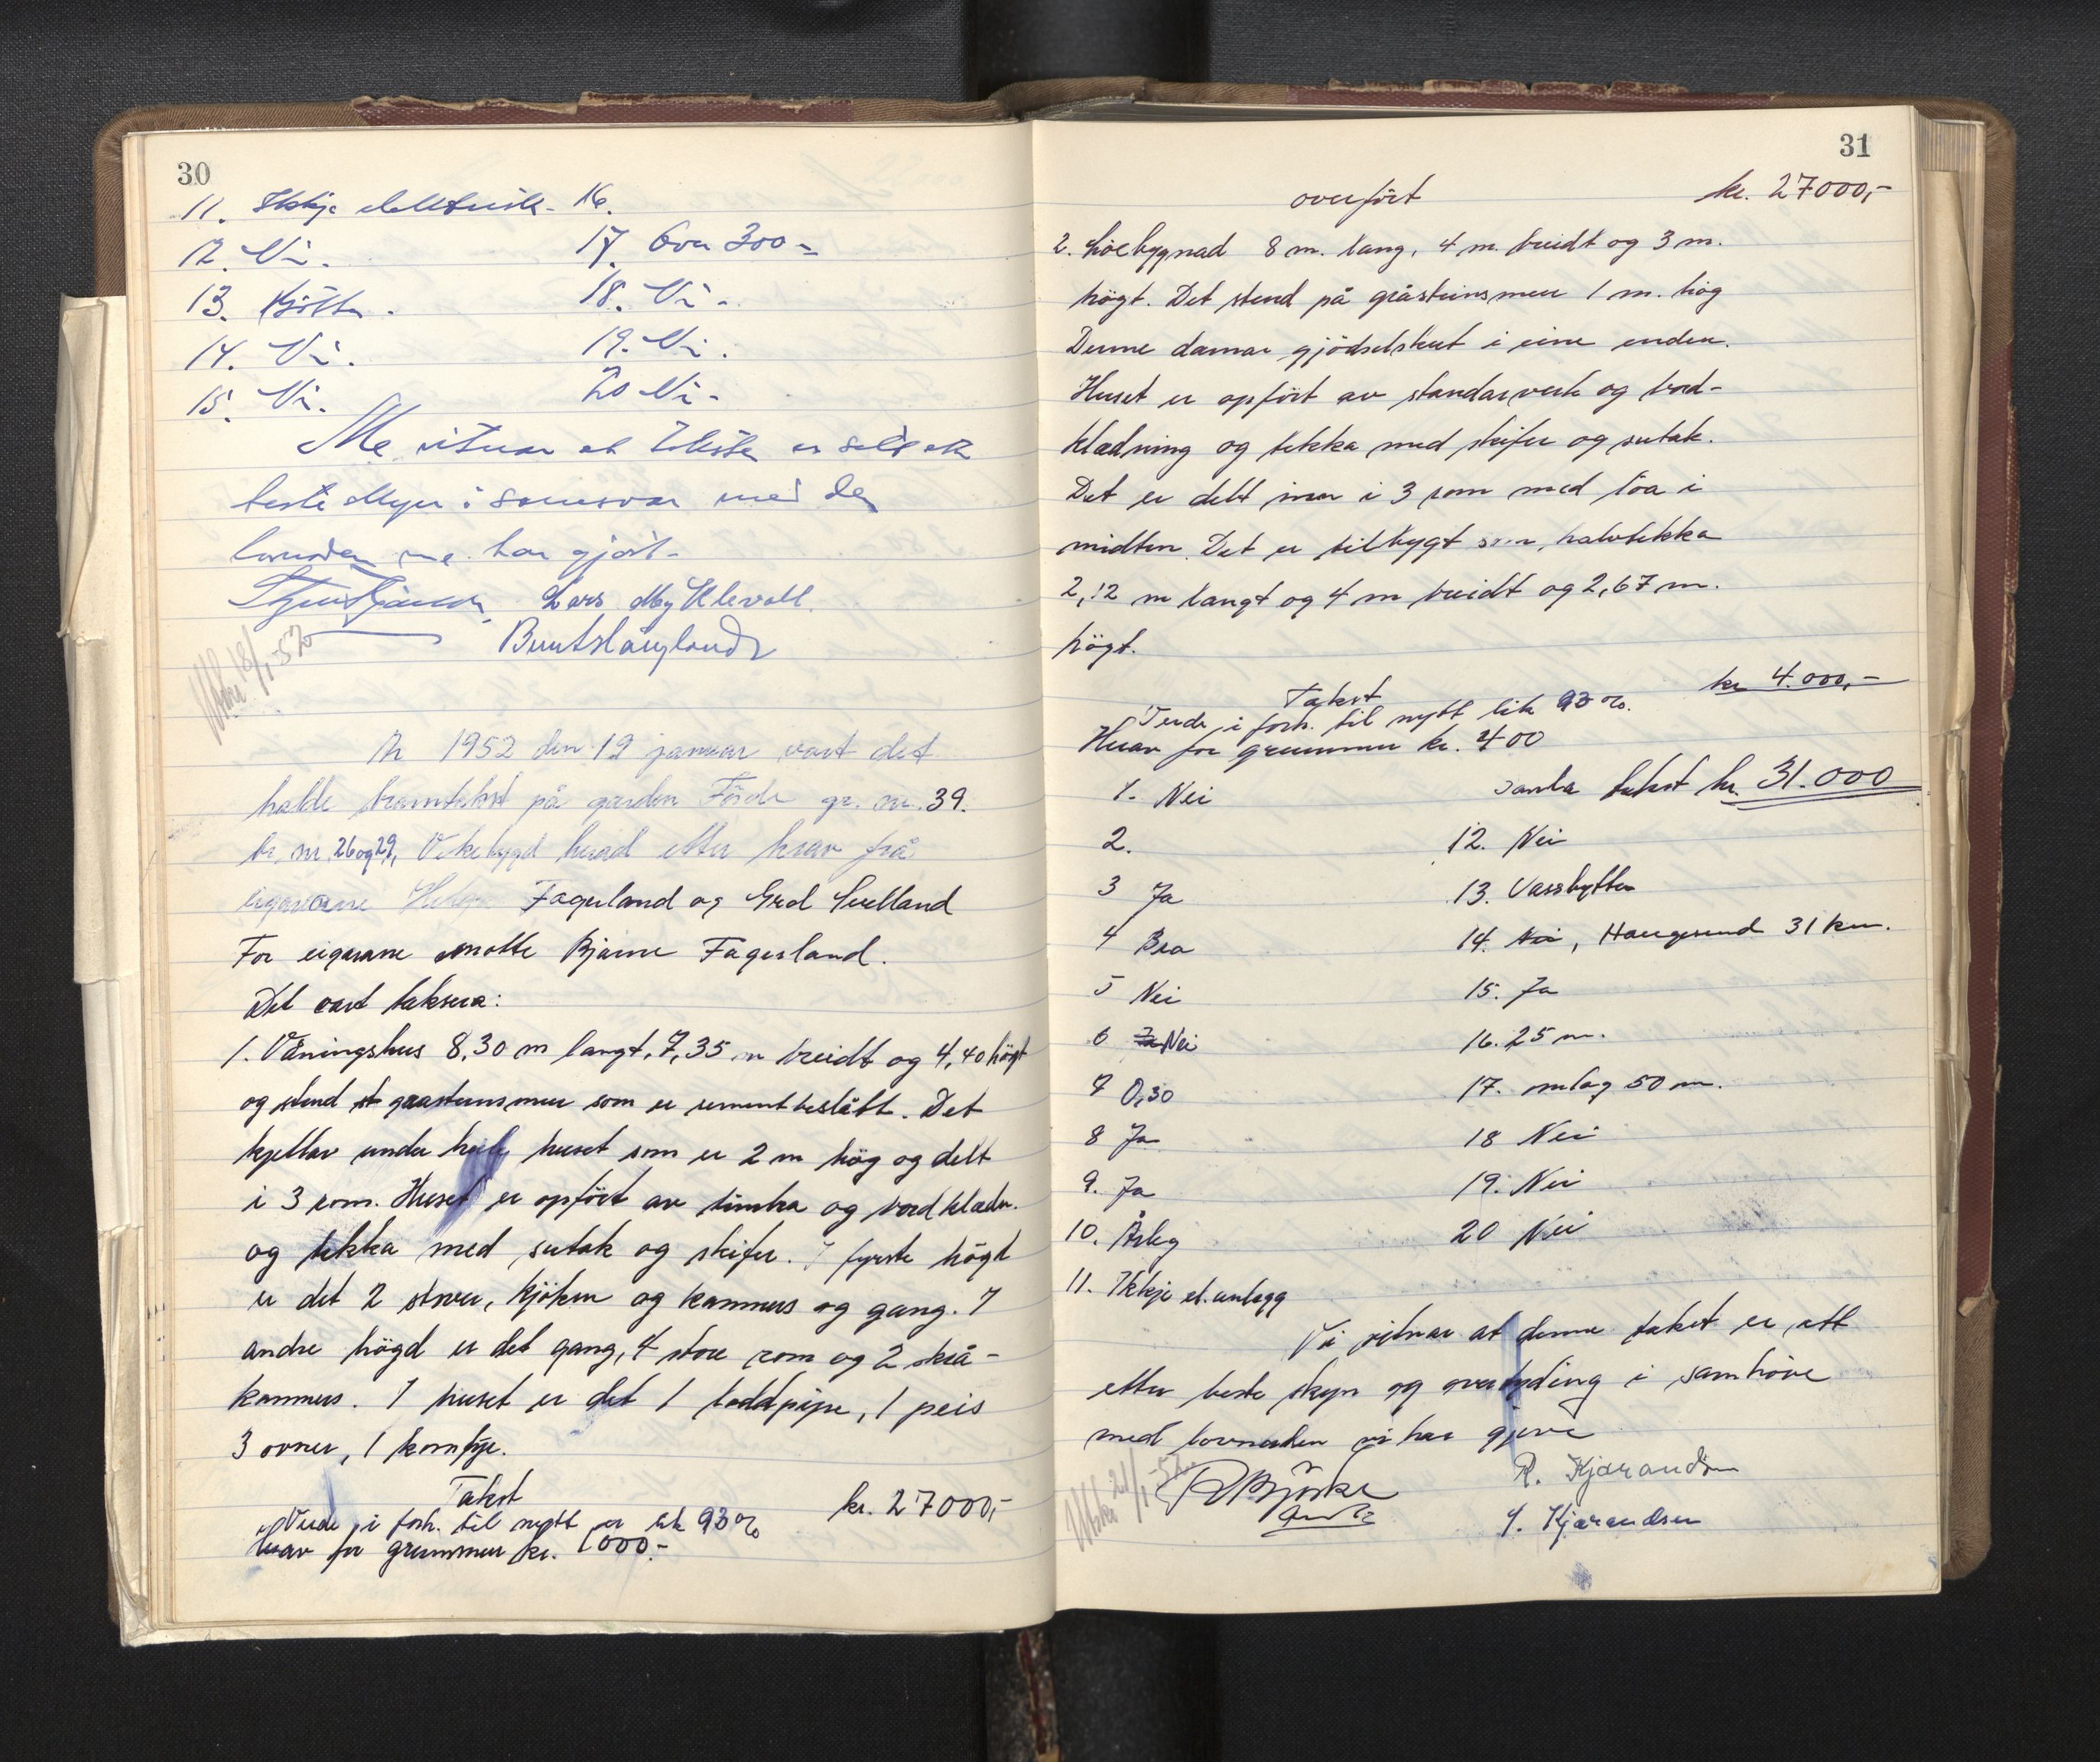 30
11. Ikkje elektrisk.
12. Nei.
13. Bötter.
14. Nei.
15. Nei.
16.
17. Over 300 -
18. Nei.
19. Nei.
20 Nei.
Me vitnar at taksten er sett etter
beste skyn i samsvar med den
lovnaden me har gjort.
Lars Myklevoll.
Bernt Haugland
Utskr. 18/1-52
År 1952 den 19 januar vart det
halde branntakst på garden Förde gr. nr. 39.
br. nr. 26 og 29, Vikebygd herad etter krav frå
eigarane Fagerland og Grd Svelland
For eigarane møtte Bjarne Fagerland.
Det vart taksera:
1. Våningshus 8,30 m langt, 7,35 m breidt og 4,40 högt
og stend gråsteinsmur som er sementbeslått. Det
kjellar under heile huset som er 2 m hög og delt
i 3 rom. Huset er opfört av timbra og bordklædn.
og tekka med sutak og skifer. I fyrste högd
er det 2 stover, kjöken og kammers og gang. I
andre högd er det gang, 4 store rom og 2 skrå-
kammers. I huset er det 1 loddpipe, 1 peis
3 ovner, 1 komfyr.
Takst kr. 27000,-
Verde i forh. til nytt er lik 93 %
Herav for grunnmur kr. 1000.-
31
overfört kr. 27000,-
2. Löebygnad 8 m. lang, 4 m. breidt og 3 m.
högt. Det stend på gråsteinsmur 1 m. hög
Denne danar gjödselshus i eine enden.
Huset er opfört av standarverk og bord-
klædning og tekka med skifer og sutak.
Det er delt inn i 3 rom med löa i
midten. Det er tilbygt som halvtekka
2,12 m langt og 4 m breidt og 2,67 m.
högt.
Takst kr 4.000,-
Verde i forh. til nytt lik 93 %.
Herav for grunnmur kr. 400
Samla takst kr. 31.000
1. Nei
2.
3 Ja
4 Bra
5 Nei
6 Ja Nei
7 0,30
8 Ja
9. Ja
10. Årleg
11. Ikkje el. anlegg
12. Nei
13. Vassbytter
14. Nei, Haugesund 31 km.
15. Ja
16. 25 m.
17. omlag 50 m.
18 Nei
19. Nei
20 Nei
Vi vitnar at denne takst er sett
etter beste skyn og overtyding i samhöve
med lovnaden vi har gjeve
R. Kjærandsen
Y. Kjærandsen
Utskr. 21/1-52